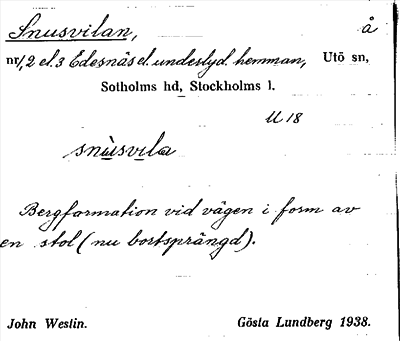 Snusvilan, å
nr 1, 2 el. 3 Edesnäs el. underlyd. hemman, Utö sn,
Sotholms hd, Stockholms l.
U 18
snùsvila
Bergformation vid vägen i form av
en stol (nu bortsprängd).
John Westin. Gösta Lundberg 1938.